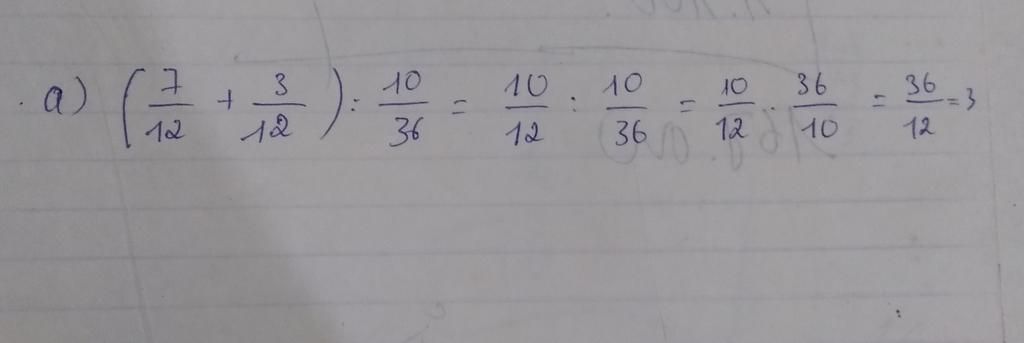 a) (7/12 + 3/12) : 10/36 = 10/12 : 10/36 = 10/12 · 36/10 = 36/12 = 3